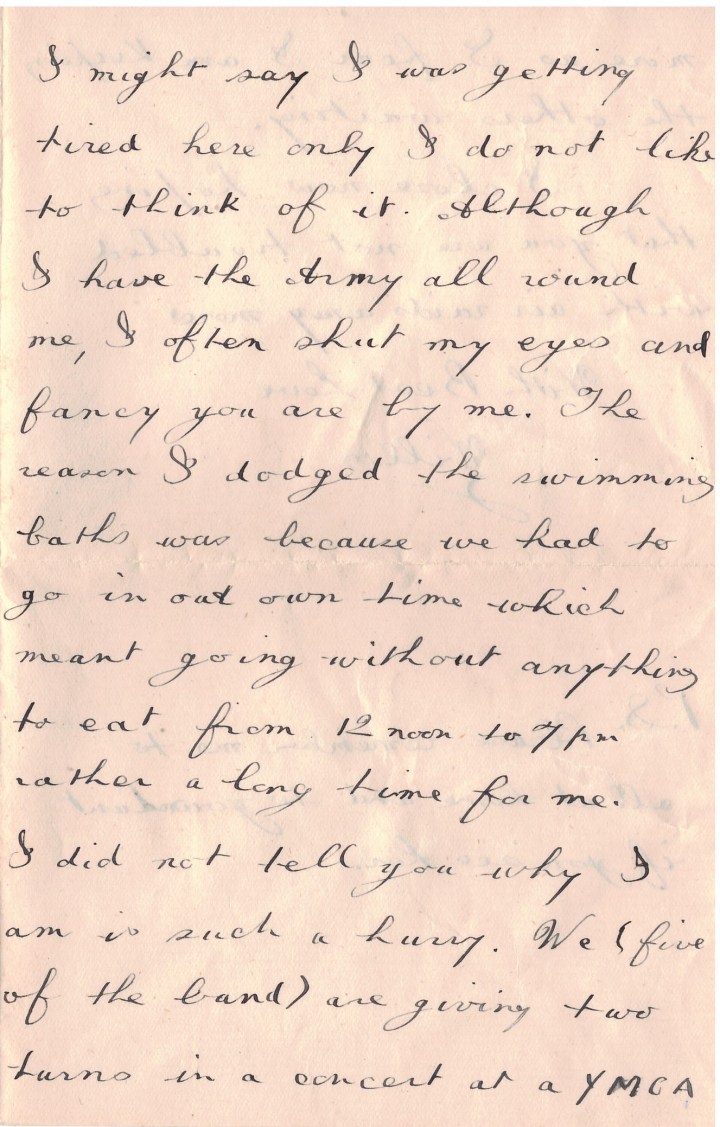 I might say I was getting
tired here only I do not like
to think of it. Although
I have the Army all round
me, I often shut my eyes and
fancy you are by me. The
reason I dodged the swimming
baths was because we had to
go in out own time which
meant going without anything
to eat from 12 noon to 7 pm
rather a long time for me.
I did not tell you why I
am is such a hurry. We (five
of the band) are giving two
turns in a concert at a YMCA